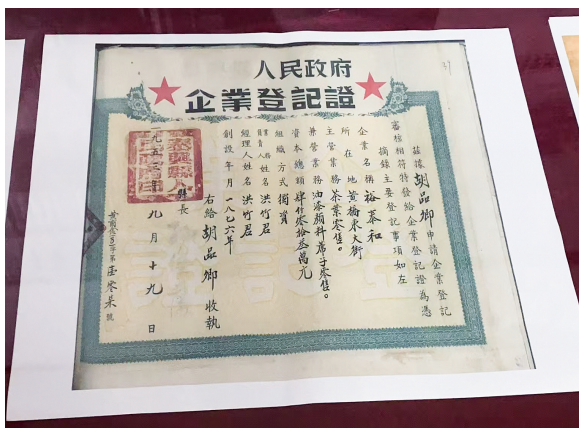 人民政府
企業登記證
茲據胡品卿申請企業登記
審核相符特發給企業登記證為憑
摘錄主要登記事項如左
企業名稱裕泰和
所在地黃橋東大街
主營業務茶業零售。
兼營業務油漆顏料蓆子零售。
資本總額肆仟零拾叁萬元
組織方式獨資
業務負責人姓名洪竹君
經理人姓名洪竹君
創設年月一八七六年
右給胡品卿收執
縣長
一九五 九月十九日
字第伍零柒號